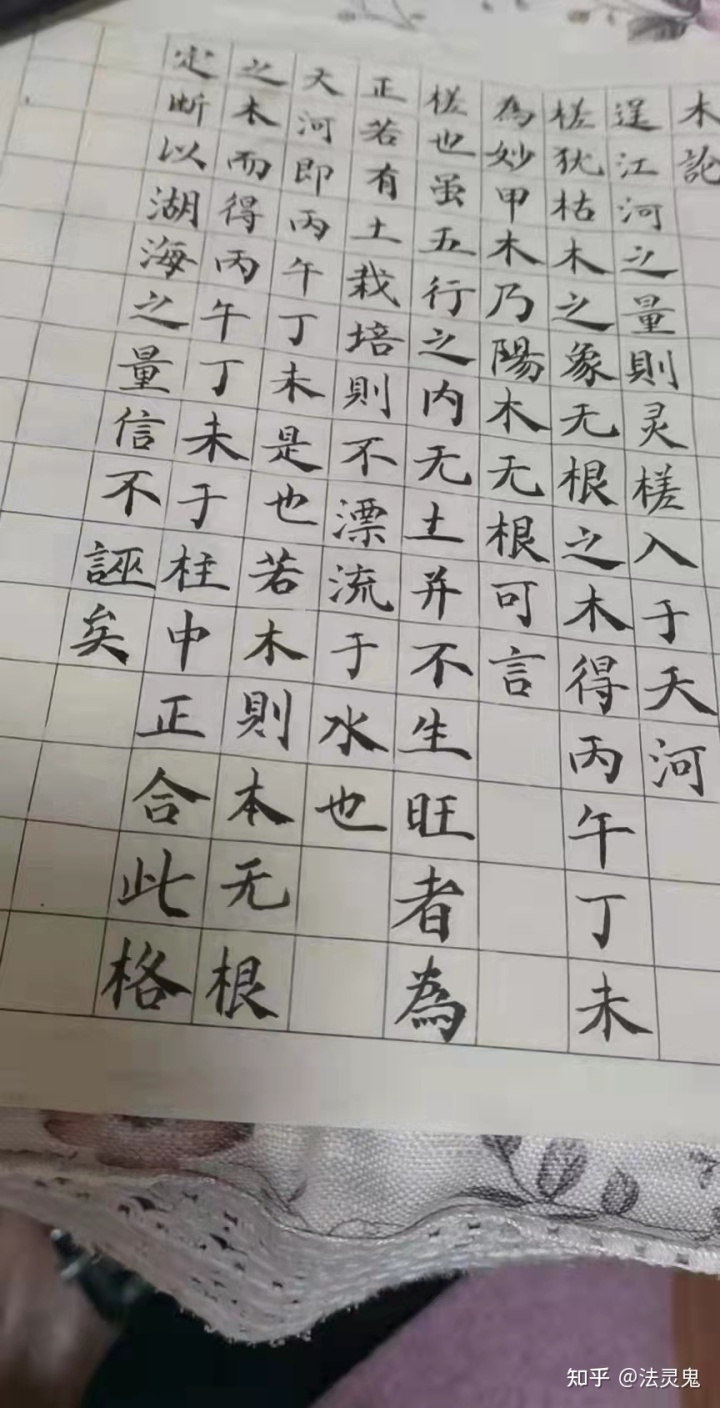 木論
逞江河之量則灵槎入于天河
槎犹枯木之象无根之木得丙午丁未
為妙甲木乃陽木无根可言
槎也虽五行之内无土并不生旺者為
正若有土栽培則不漂流于水也
天河即丙午丁未是也若木則本无根
之木而得丙午丁未于柱中正合此格
定断以湖海之量信不誣矣
知乎 @法灵鬼